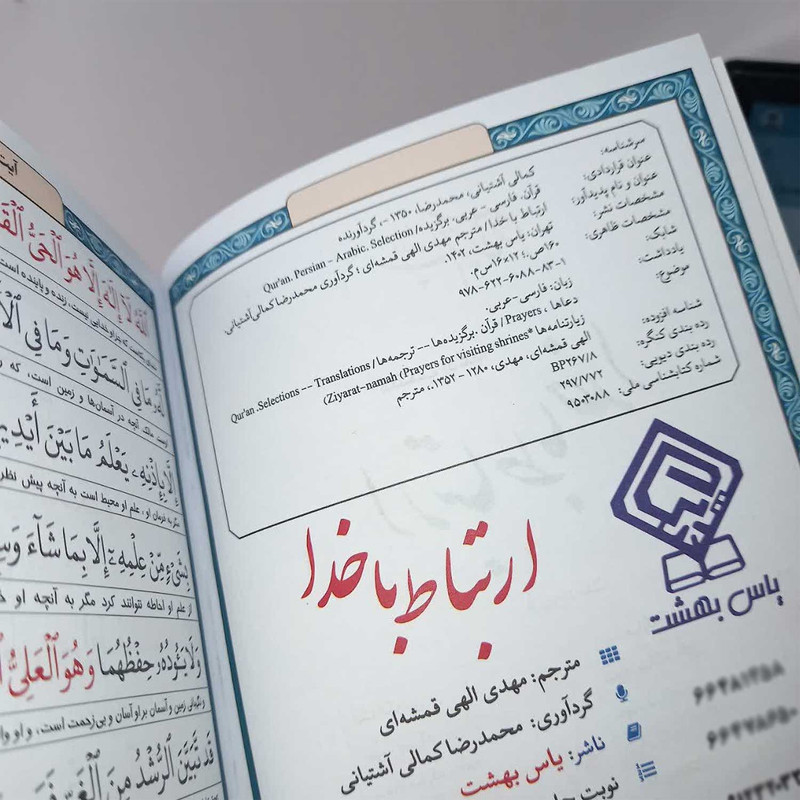 سرشناسه: کمالی آشتیانی، محمدرضا، ۱۳۵۰ -، گردآورنده
عنوان قراردادی: قرآن. فارسی - عربی. برگزیده/ Qur'an. Persian - Arabic. Selection
عنوان و نام پدیدآور: ارتباط با خدا/ مترجم مهدی الهی قمشه‌ای ؛ گردآوری محمدرضا کمالی آشتیانی.
مشخصات نشر: تهران: یاس بهشت، ۱۴۰۲.
مشخصات ظاهری: ۱۶۰ص؛ ۱۲×۱۶س‌م.
شابک: ۹۷۸-۶۲۲-۶۰۸۸-۸۳-۱
یادداشت: زبان: فارسی-عربی.
موضوع: دعاها ، Prayers/ قرآن .برگزیده‌ها -- ترجمه‌ها/ Qur'an .Selections -- Translations
زیارتنامه‌ها *Ziyarat-namah (Prayers for visiting shrines)
شناسه افزوده: الهی قمشه‌ای، مهدی، ۱۲۸۰ - ۱۳۵۲.، مترجم
رده بندی کنگره: BP۲۶۷/۸
رده بندی دیویی: ۲۹۷/۷۷۲
شماره کتابشناسی ملی: ۹۵۰۳۰۸۸
یاس بهشت
ارتباط با خدا
مترجم: مهدی الهی قمشه‌ای
گردآوری: محمدرضا کمالی آشتیانی
ناشر: یاس بهشت
نوبت
ٱللَّهُ لَآ إِلَٰهَ إِلَّا هُوَ ٱلْحَيُّ
خدایی نیست، زنده و پاینده است
مَا فِي ٱلسَّمَٰوَٰتِ وَمَا فِي
مالک آنچه در آسمان‌ها و زمین است، که
إِلَّا بِإِذْنِهِۦ يَعْلَمُ مَا بَيْنَ
فرمان او، علم او محیط است به آنچه پیش نظر
بِشَيْءٍ مِّنْ عِلْمِهِۦٓ إِلَّا بِمَا شَآءَ
از علم او احاطه نتوانند کرد مگر به آنچه او
وَلَا يَـُٔودُهُۥ حِفْظُهُمَا وَهُوَ ٱلْعَلِيُّ
و نگهبانی زمین و آسمان بر او آسان و بی‌زحمت است، و او
قَد تَّبَيَّنَ ٱلرُّشْدُ مِنَ ٱلْغَيِّ